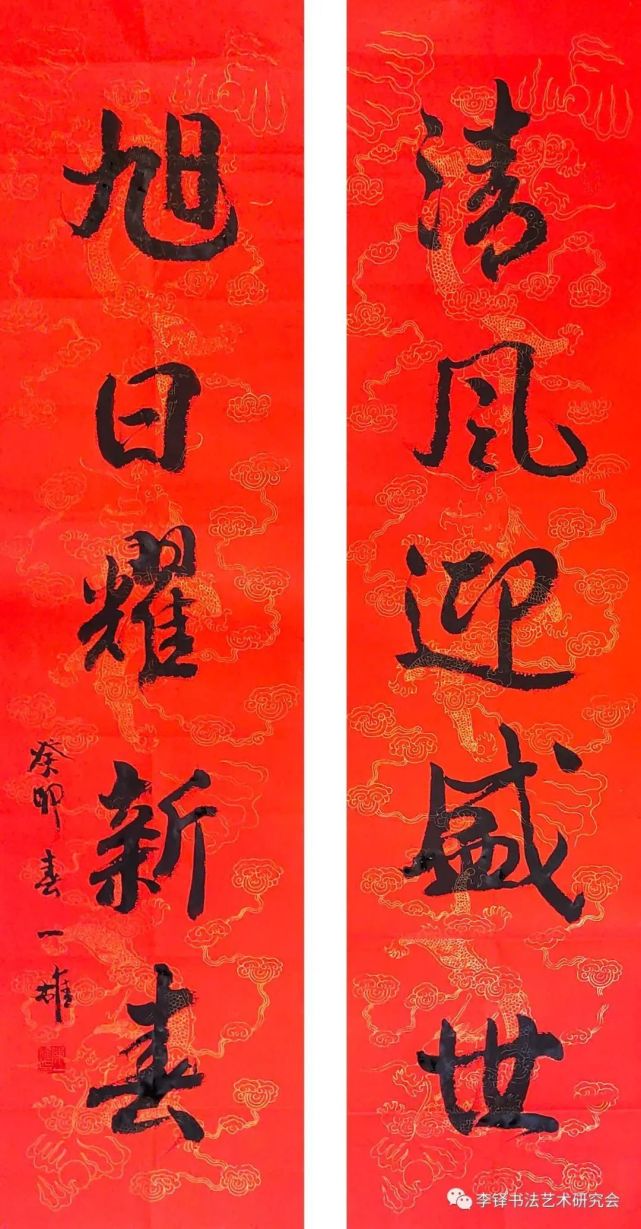 清风迎盛世
旭日耀新春
癸卯春一雄
李铎书法艺术研究会